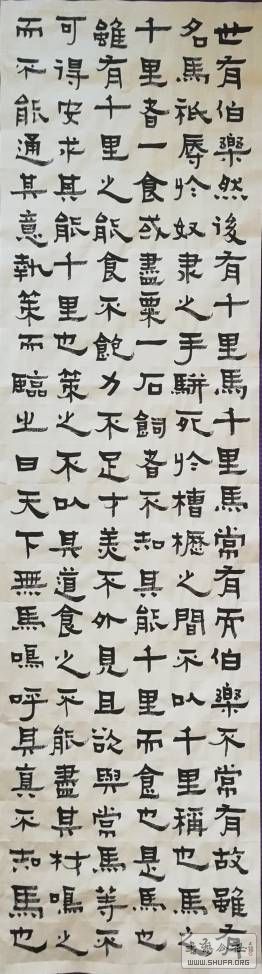 世有伯樂然後有千里馬千里馬常有而伯樂不常有故雖有
名馬祇辱於奴隸之手駢死於槽櫪之間不以千里稱也馬之
千里者一食或盡粟一石飼者不知其能千里而食也是馬也
雖有千里之能食不飽力不足才美不外見且欲與常馬等不
可得安求其能千里也策之不以其道食之不能盡其材鳴之
而不能通其意執策而臨之曰天下無馬鳴呼其真不知馬也
WWW.SHUFA.ORG